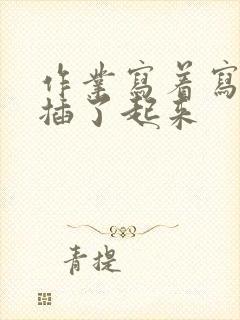 作業寫着寫
插了起来
青提